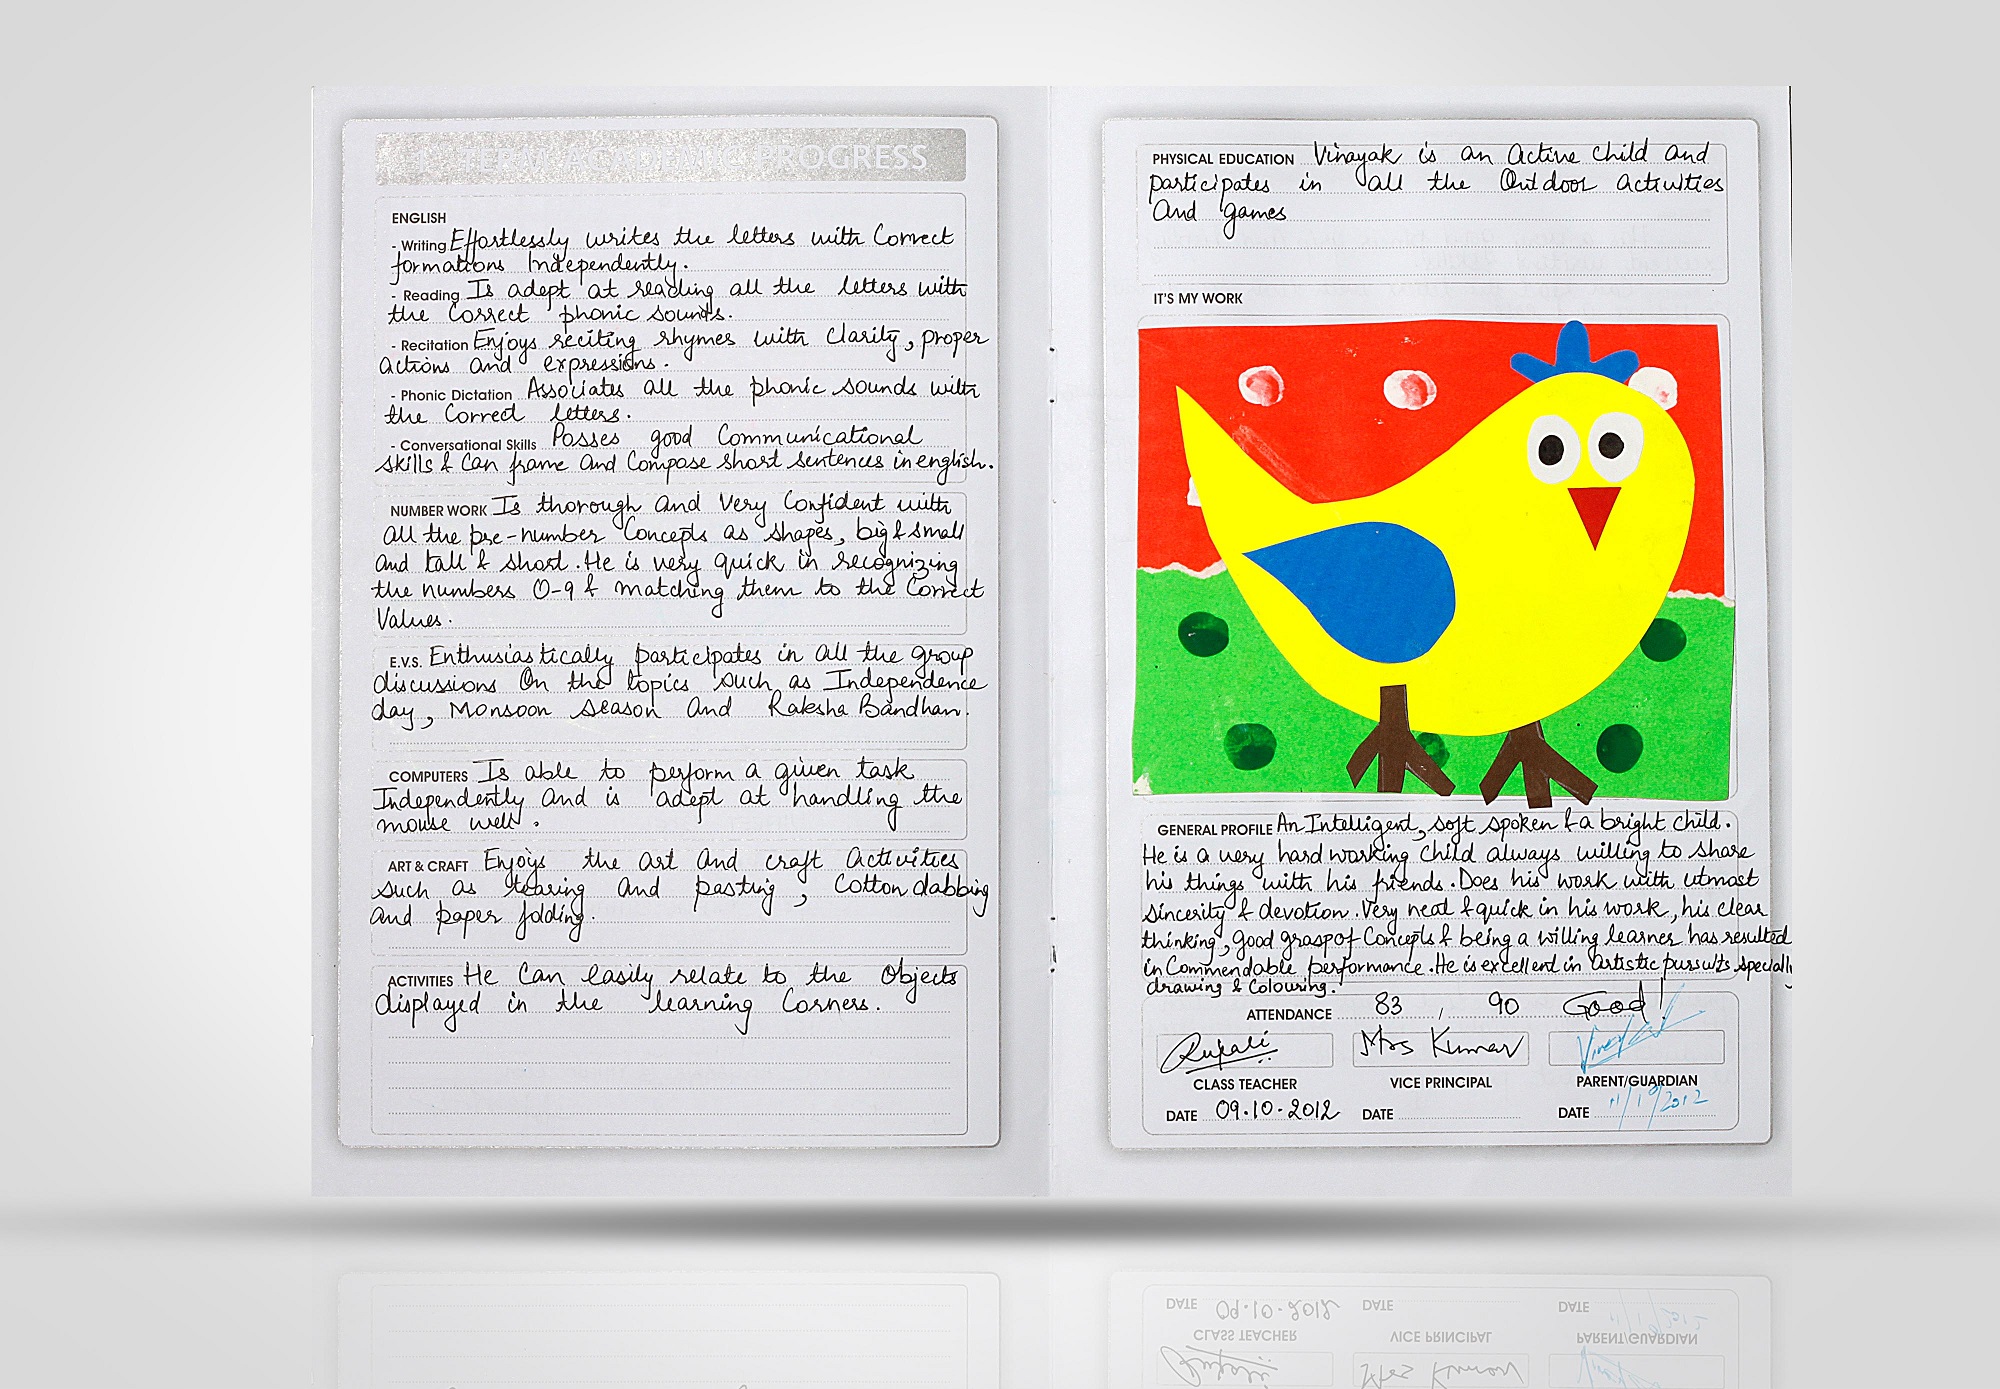 1st TERM ACADEMIC PROGRESS
ENGLISH
- Writing Effortlessly writes the letters with Correct
formations Independently.
- Reading Is adept at reading all the letters with
the Correct phonic sounds.
- Recitation Enjoys reciting rhymes with Clarity, proper
actions and expressions.
- Phonic Dictation Associates all the phonic sounds with
the Correct letters.
- Conversational Skills Posses good Communicational
skills & Can frame and Compose short sentences in english.
NUMBER WORK Is thorough and Very Confident with
all the pre-number Concepts as shapes, big & small
and tall & short. He is very quick in recognizing
the numbers 0-9 & matching them to the Correct
Values.
E.V.S. Enthusiastically participates in all the group
discussions On the topics such as Independence
day, Monsoon Season and Raksha Bandhan.
COMPUTERS Is able to perform a given task
Independently and is adept at handling the
mouse well.
ART & CRAFT Enjoys the art and craft Activities
such as tearing and pasting, Cotton dabbing
and paper folding.
ACTIVITIES He Can easily relate to the Objects
displayed in the learning Corners.
PHYSICAL EDUCATION Vinayak is an Active Child and
participates in all the Outdoor activities
and games
IT'S MY WORK
GENERAL PROFILE An Intelligent, soft spoken & a bright child.
He is a very hard working Child always willing to share
his things with his friends. Does his work with utmost
sincerity & devotion. Very neat & quick in his work, his clear
thinking, good grasp of Concepts & being a willing learner has resulted
in Commendable performance. He is excellent in artistic pursuits specially
drawing & Colouring.
ATTENDANCE 83 / 90 Good!
Rupali Mrs Kumar
CLASS TEACHER VICE PRINCIPAL PARENT/GUARDIAN
DATE 09.10-2012 DATE DATE 11/10/2012